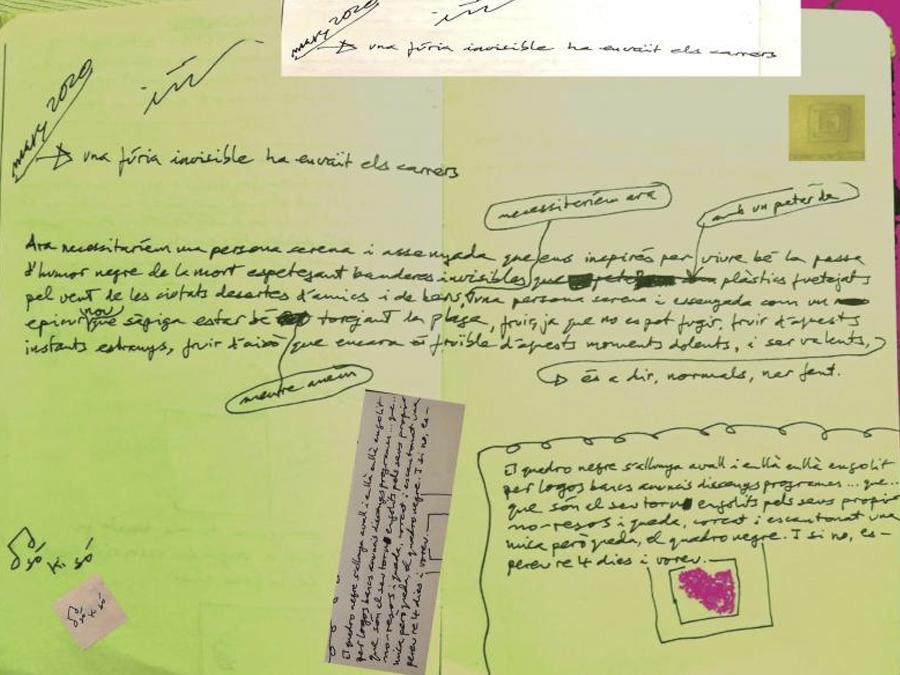 març 2020
una fúria invisible ha envaït els carrers
març 2020
una fúria invisible ha envaït els carrers
necessitaríem ara
amb un peter de
Ara necessitaríem una persona serena i assenyada que ens inspirés per viure bé la passa
d'humor negre de la mort espetegant banderes invisibles que plàstics fuetejats
pel vent de les ciutats desertes d'amics i de bars, una persona serena i assenyada com un
epicuri nou que sàpiga estar bé torejant la plaga, fruir, ja que no es pot fugir, fruir d'aquests
instants estranys, fruir d'això que encara és fruïble d'aquests moments dolents, i ser valents,
és a dir, normals, anar fent.
mentre anem
El quadro negre s'allunya avall i enllà enllà engolit
per logos bancs anuncis discursos programes... que...
que són el seu torn engolits pels seus propis
no-resos i queda, corcat i escantonat una
mica però queda, el quadro negre. I si no, es-
pereu-re 4 dies i voreu.
El quadro negre s'allunya avall i enllà enllà engolit
per logos bancs anuncis discursos programes... que...
que són el seu torn engolits pels seus propis
no-resos i queda, corcat i escantonat una
mica però queda, el quadro negre. I si no, es-
pereu-re 4 dies i voreu.
só k só
só k só